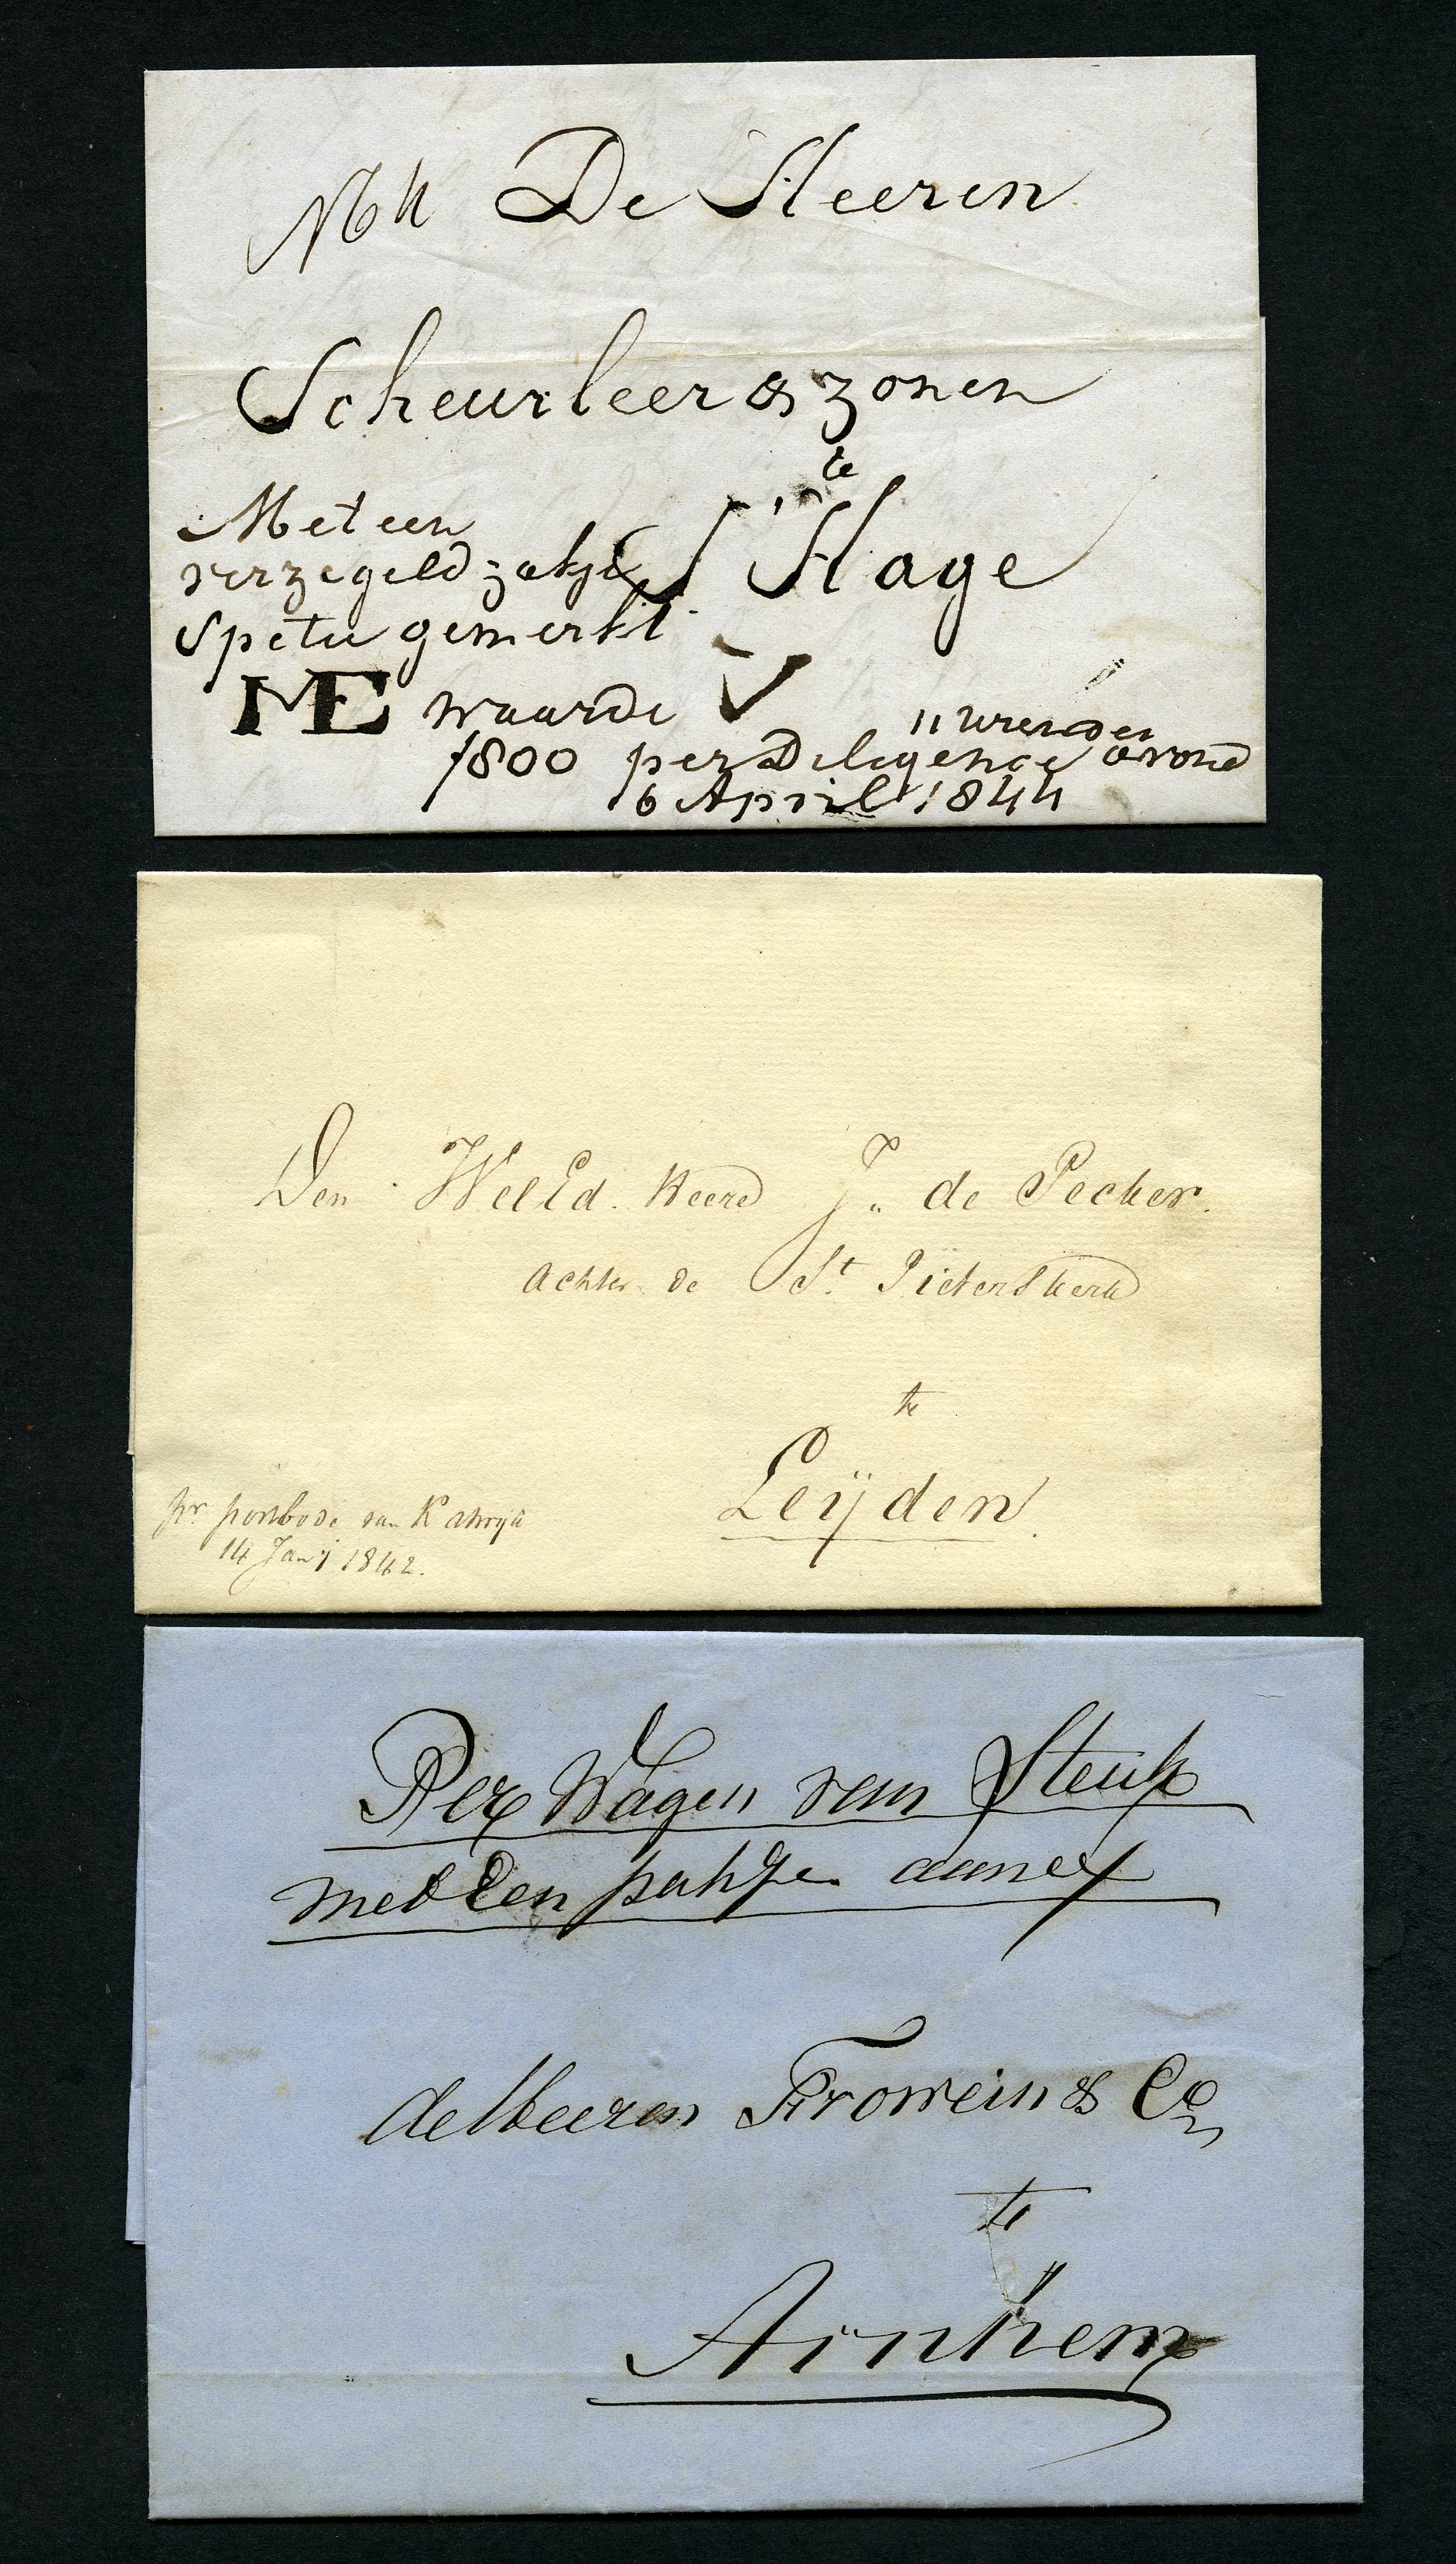 MH De Heeren
Scheurleer & zonen
te
S' Hage
Met een
verzegeld zakje
Spetie gemerkt
ME waarde
1800 per Diligence avond
11 uren des
6 April 1844
Den WelEd. Heere J. de Pecker.
achter de St. Pieterskerk
te
Leÿden.
pr. postbode van Katwijk
14 Janÿ 1842.
Per Wagen van Steuk
met Een pakje annex
de Heeren Frowein & Co
te
Arnhem